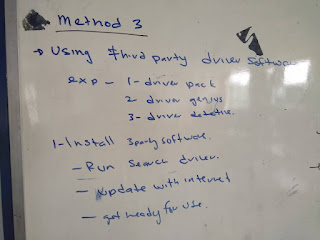 Method 3
→ Using third party driver Software
exp - 1- driver pack
2- driver genius
3- driver detective.
1- Install 3party software.
- Run Search driver.
- update with internet
- get ready for use.